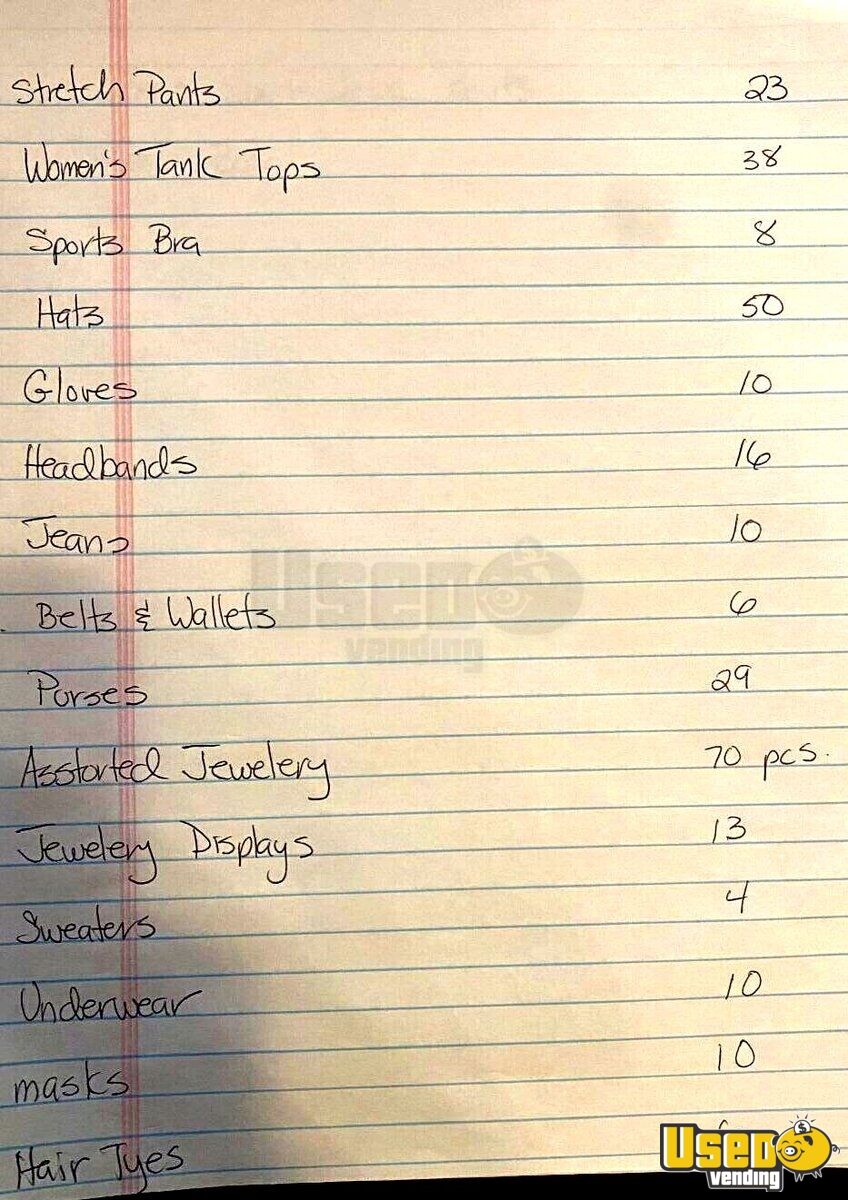 Stretch Pants 23
Women's Tank Tops 38
Sports Bra 8
Hats 50
Gloves 10
Headbands 16
Jeans 10
Belts & Wallets 6
Purses 29
Asstorted Jewelery 70 pcs.
Jewelery Displays 13
Sweaters 4
Underwear 10
masks 10
Hair Tyes
Used vending
Used vending